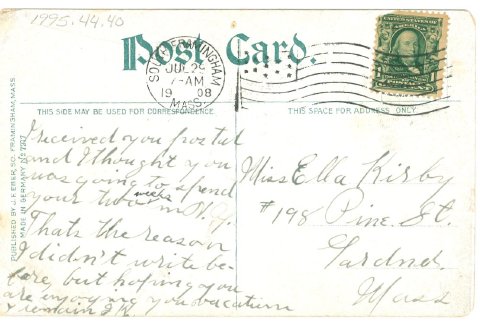 1995.44.40
Post Card.
SOUTH FRAMINGHAM
JUL 29
7-AM
1908
MASS.
THIS SIDE MAY BE USED FOR CORRESPONDENCE.
THIS SPACE FOR ADDRESS ONLY.
PUBLISHED BY J.F. EBER, SO. FRAMINGHAM, MASS.
MADE IN GERMANY
I received you postal
and I thought you
was going to spend
your two weeks in N.Y.
Thats the reason
I didn't write be-
fore, but hoping you
are enjoying you vacation
I remain
Miss Ella Kirby
#198 Pine St.
Gardner
Mass